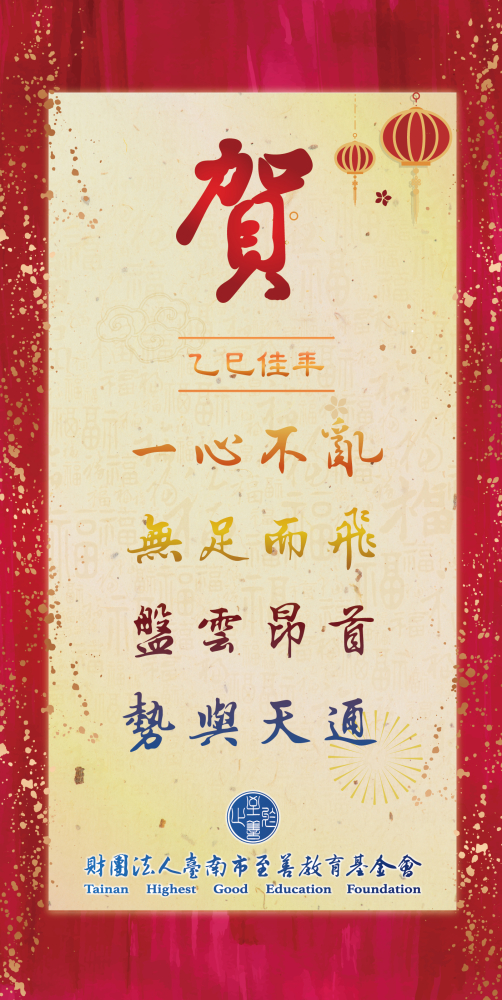 賀
乙巳佳年
一心不亂
無足而飛
盤雲昂首
勢與天通
財團法人臺南市至善教育基金會
Tainan Highest Good Education Foundation